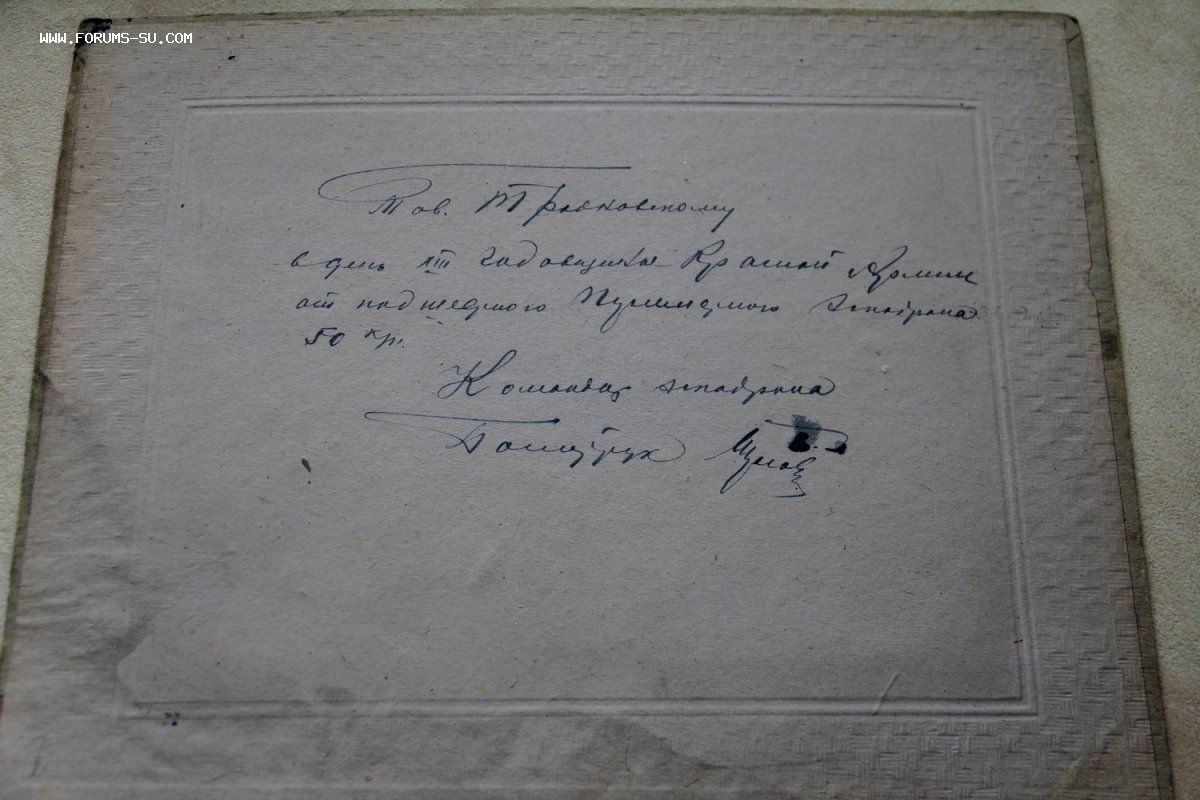 WWW.FORUMS-SU.COM
Тов.
в день XIII годовщины Красной Армии
от подшефного Пулеметного эскадрона
50 кп.
Командир эскадрона